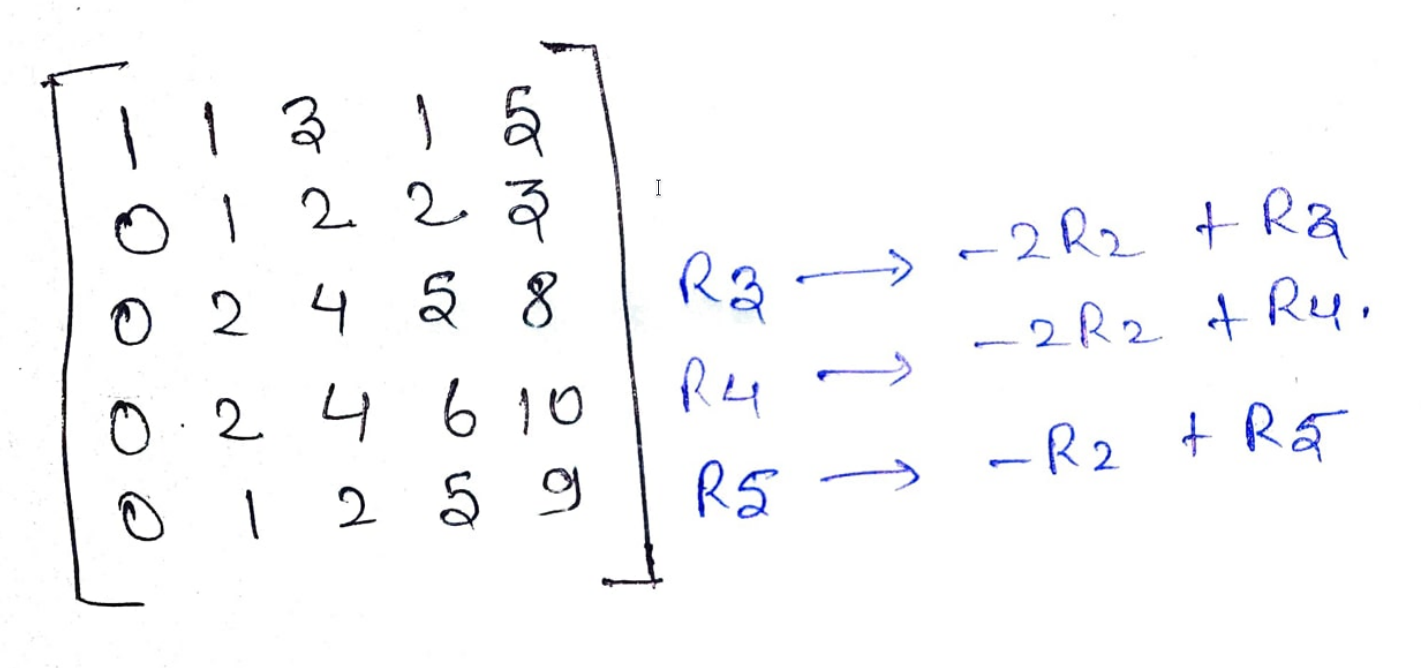 1 1 3 1 5
0 1 2 2 3
0 2 4 5 8
0 2 4 6 10
0 1 2 5 9
R3 → -2R2 + R3
R4 → -2R2 + R4.
R5 → -R2 + R5